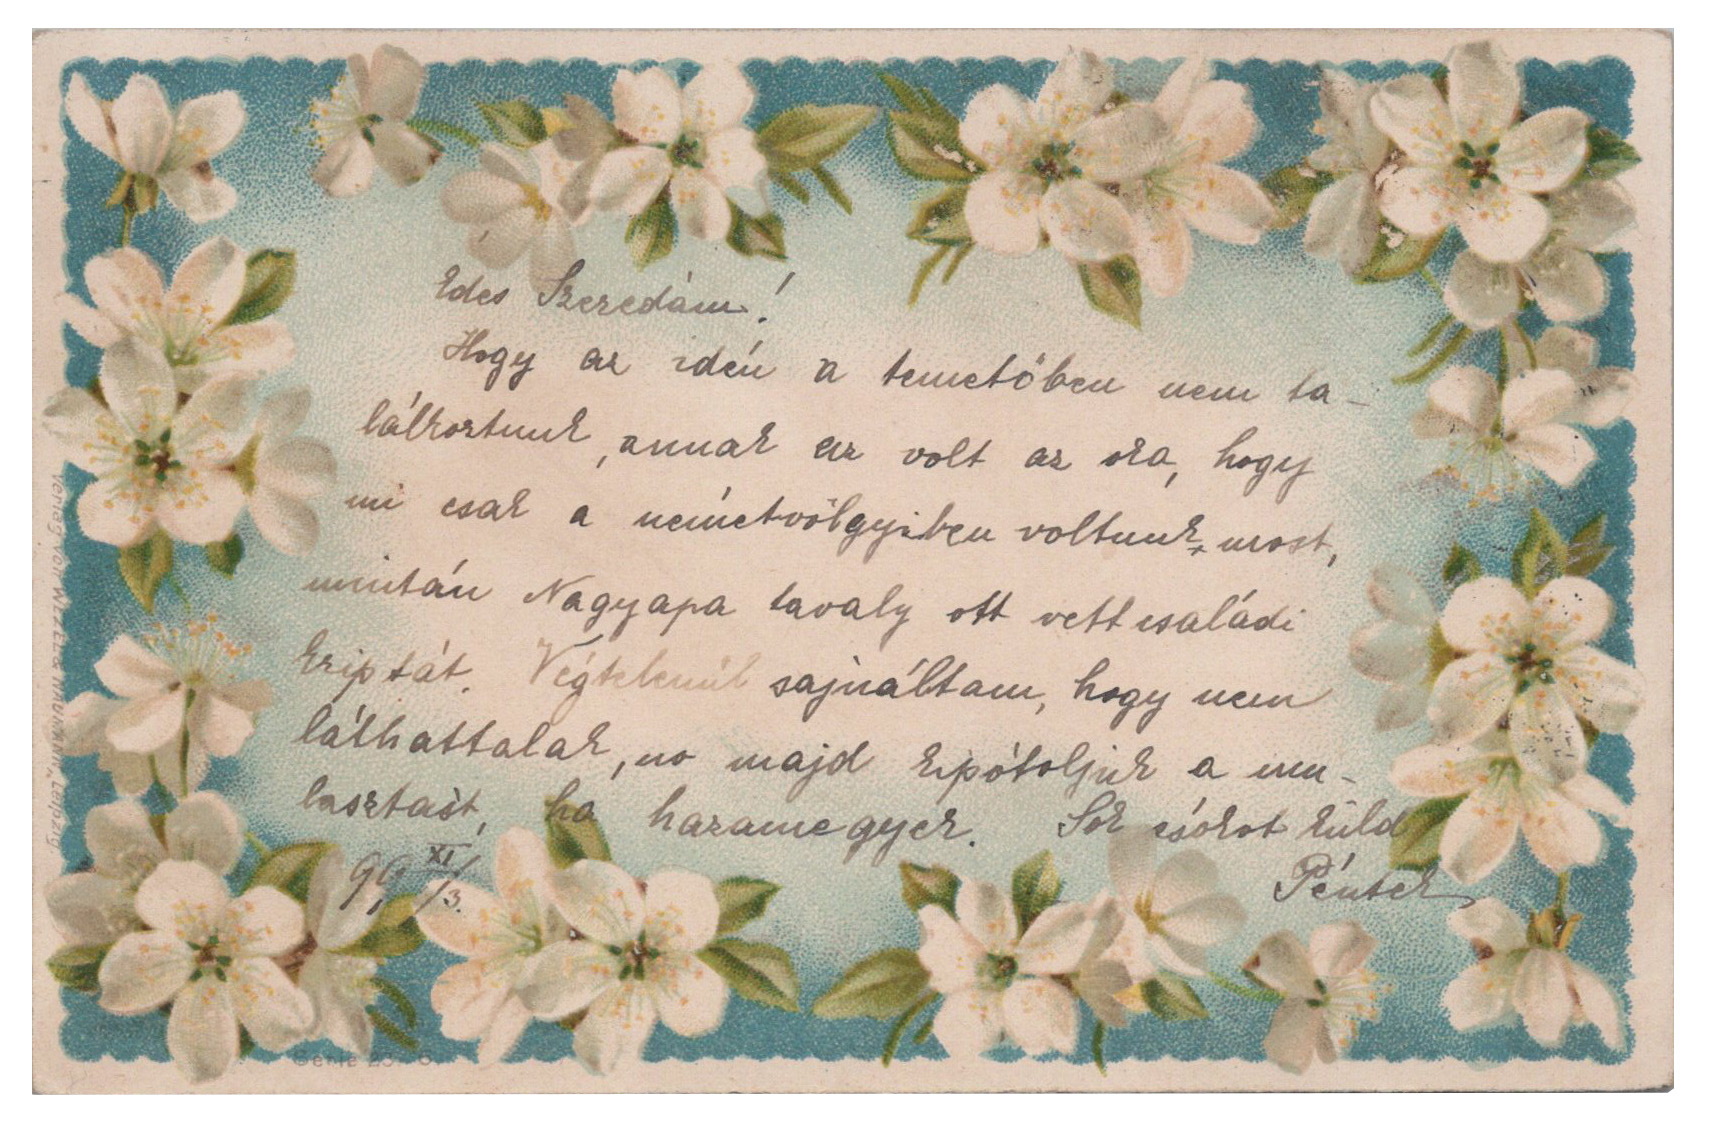 Édes Szeredám!
Hogy az idén a temetőben nem ta-
lálkoztunk, annak az volt az oka, hogy
mi csak a németvölgyiben voltunk most,
miután Nagyapa tavaly ott vett családi
kriptát. Végtelenül sajnáltam, hogy nem
láthattalak, no majd kipótoljuk a mu-
lasztást, ha hazamegyek. Sok csókot küld
Péntek
99, XI/3.
Verlag von WEZEL & NAUMANN, Leipzig.
Serie